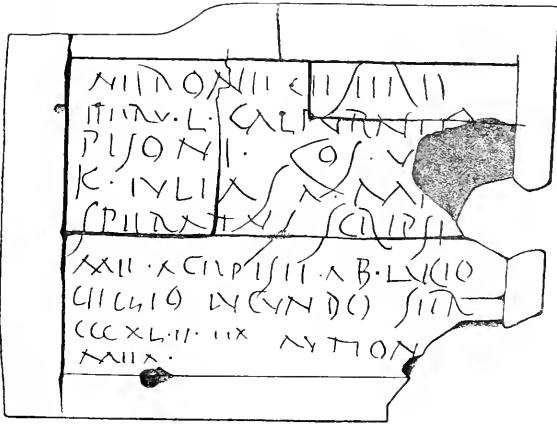 NIIRONII CIISARII II
ITIIRV · L · CALPVRNIO
PISONI · COS · V
K · IVLIAS
SPIIRATVS SCRIPSI
MII · ACIIPISII · AB · LVCIO
CIICILIO IVCVNDO
CCCXL · II · IIX AVTION
MIIA ·